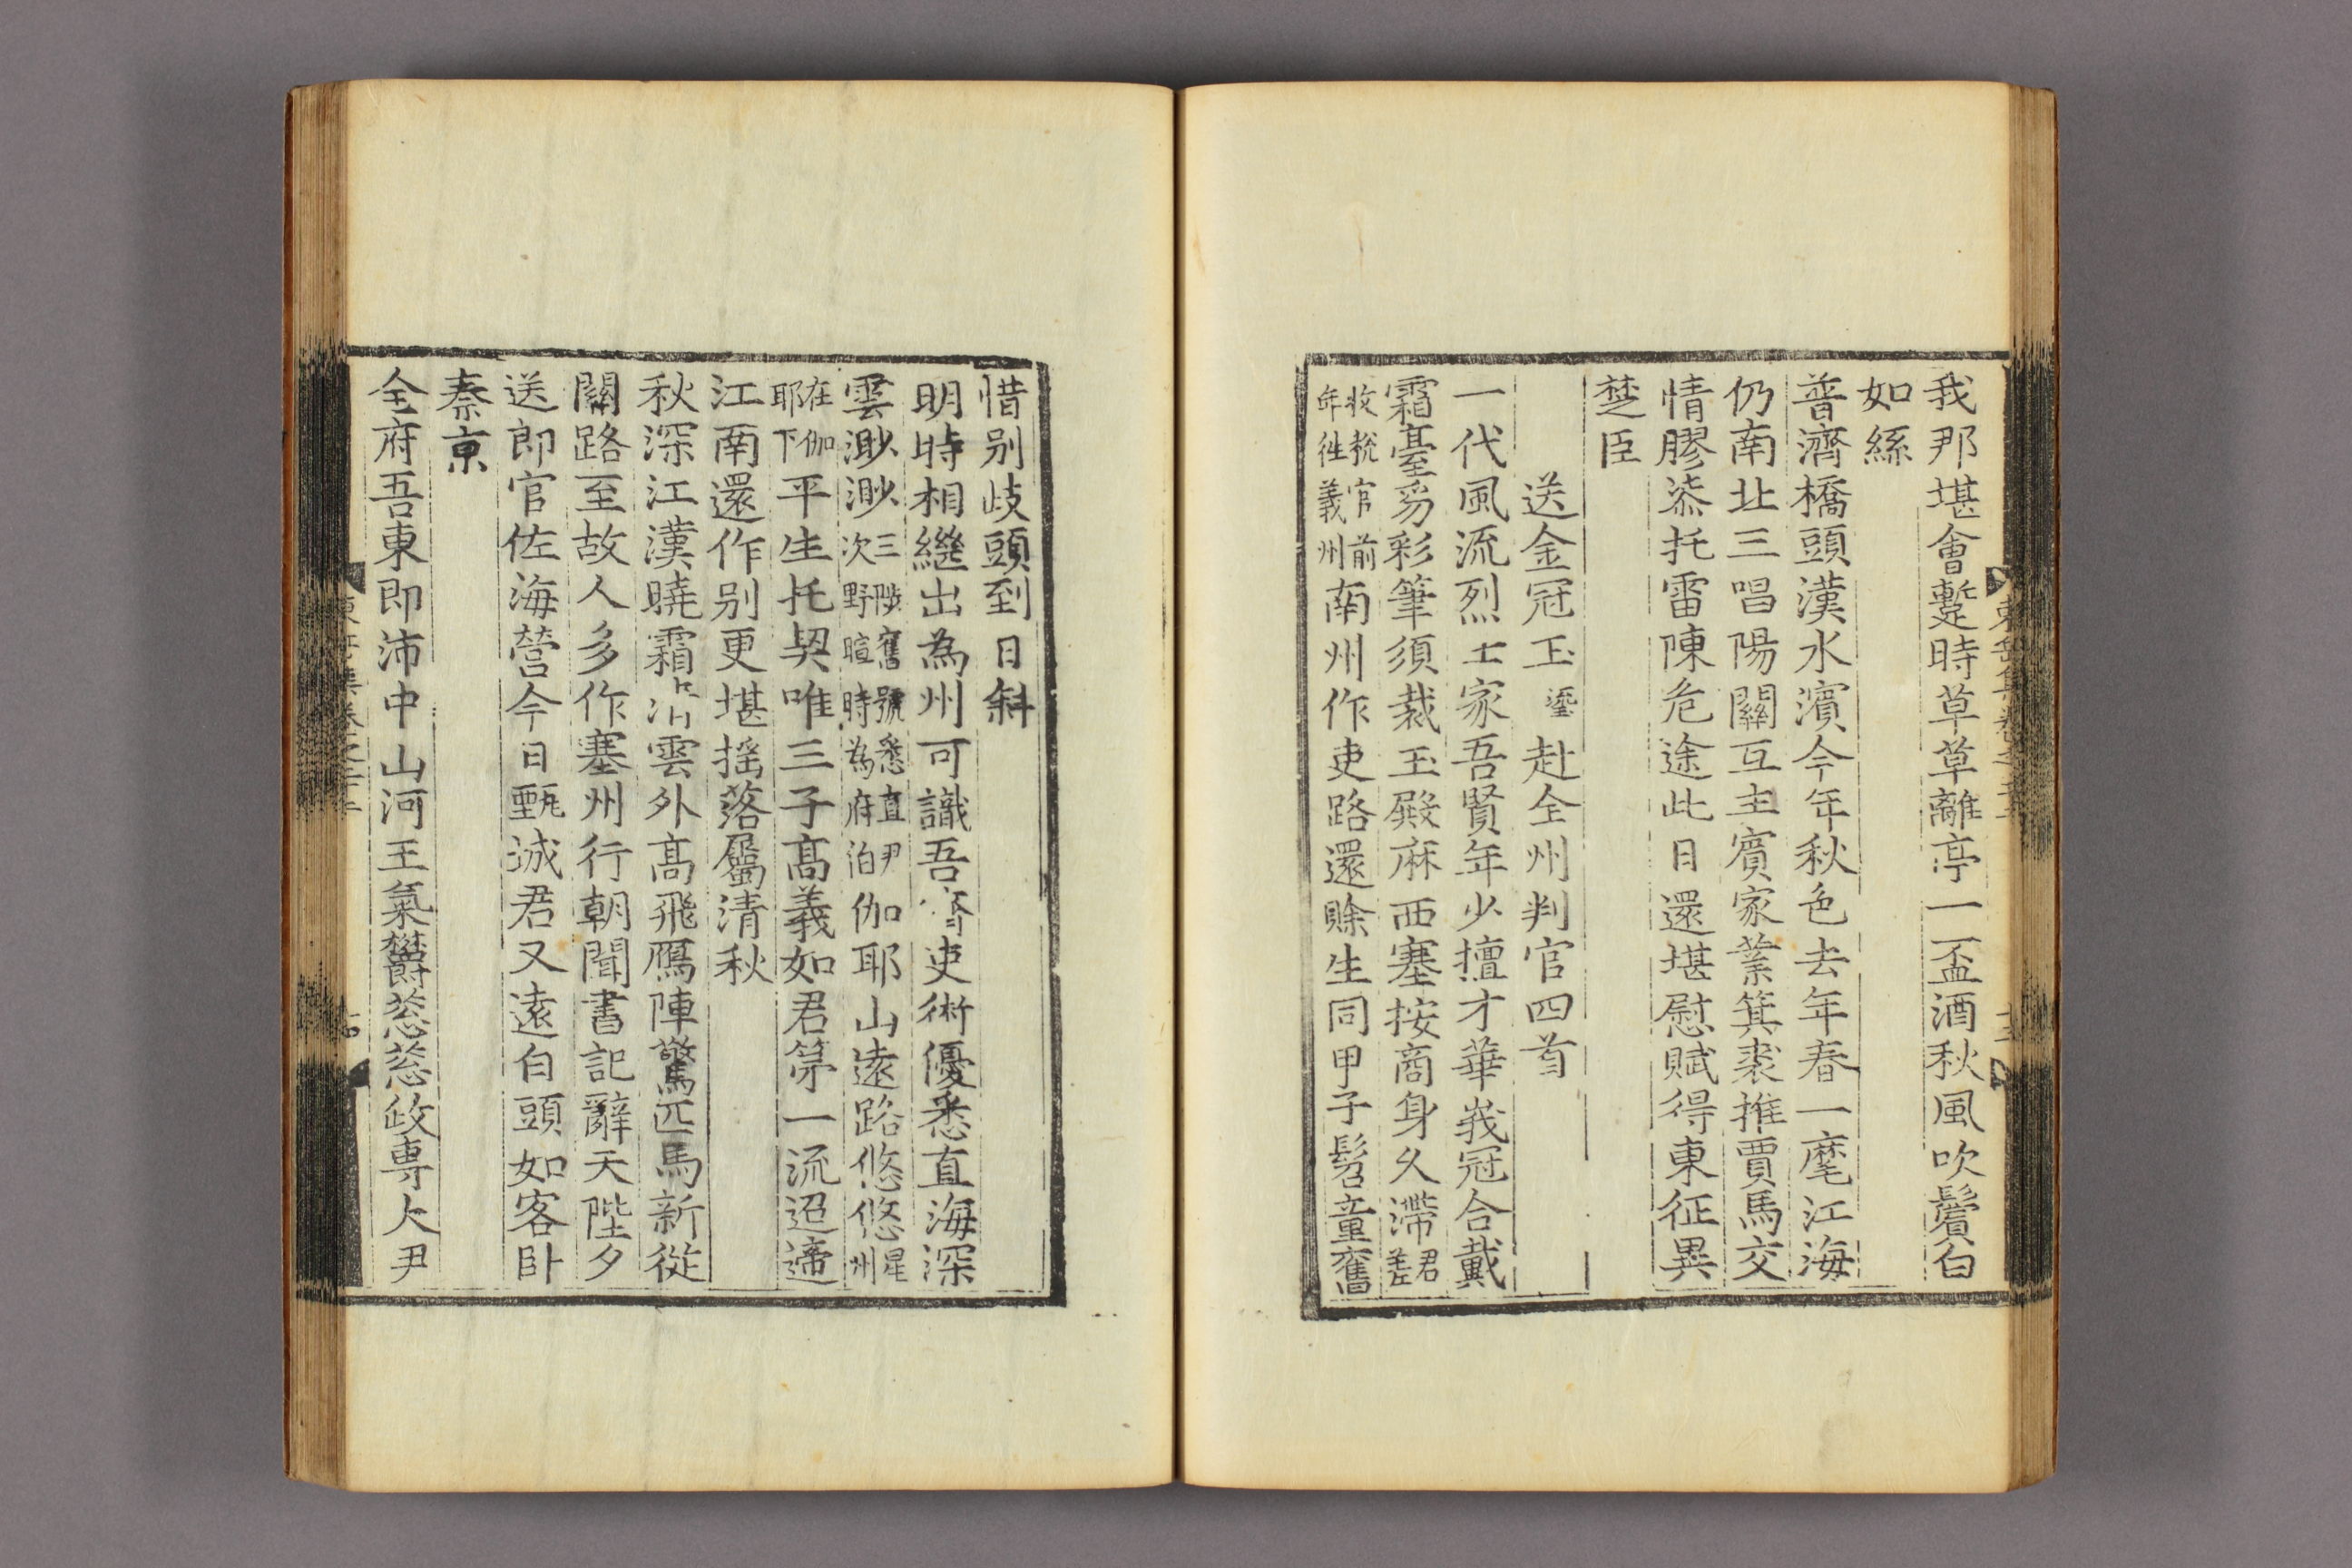 我那堪會蹔時草草離亭一盃酒秋風吹鬢白
如絲
普濟橋頭漢水濱今年秋色去年春一麾江海
仍南北三唱陽關互主賓家業箕裘推賈馬交
情膠漆托雷陳危途此日還堪慰賦得東征異
楚臣
送金冠玉瑬赴全州判官四首
一代風流烈士家吾賢年少擅才華峩冠合戴
霜臺豸彩筆須裁玉殿麻西塞按商身久滯君差
收稅官前年徃義州南州作吏路還賖生同甲子髫童舊
惜别歧頭到日斜
明時相繼出為州可識吾吏術優悉直海深
雲渺渺三陟舊號悉直尹次野暄時為府伯伽耶山遠路悠悠星州
在伽耶下平生托契唯三子高義如君第一流迢遞
江南還作别更堪搖落屬清秋
秋深江漢曉霜雲外高飛鴈陣驚匹馬新從
關路至故人多作塞州行朝聞書記辭天陛夕
送郎官佐海營今日甄城君又遠白頭如客卧
秦京
全府吾東即沛中山河王氣欝葱葱政専大尹